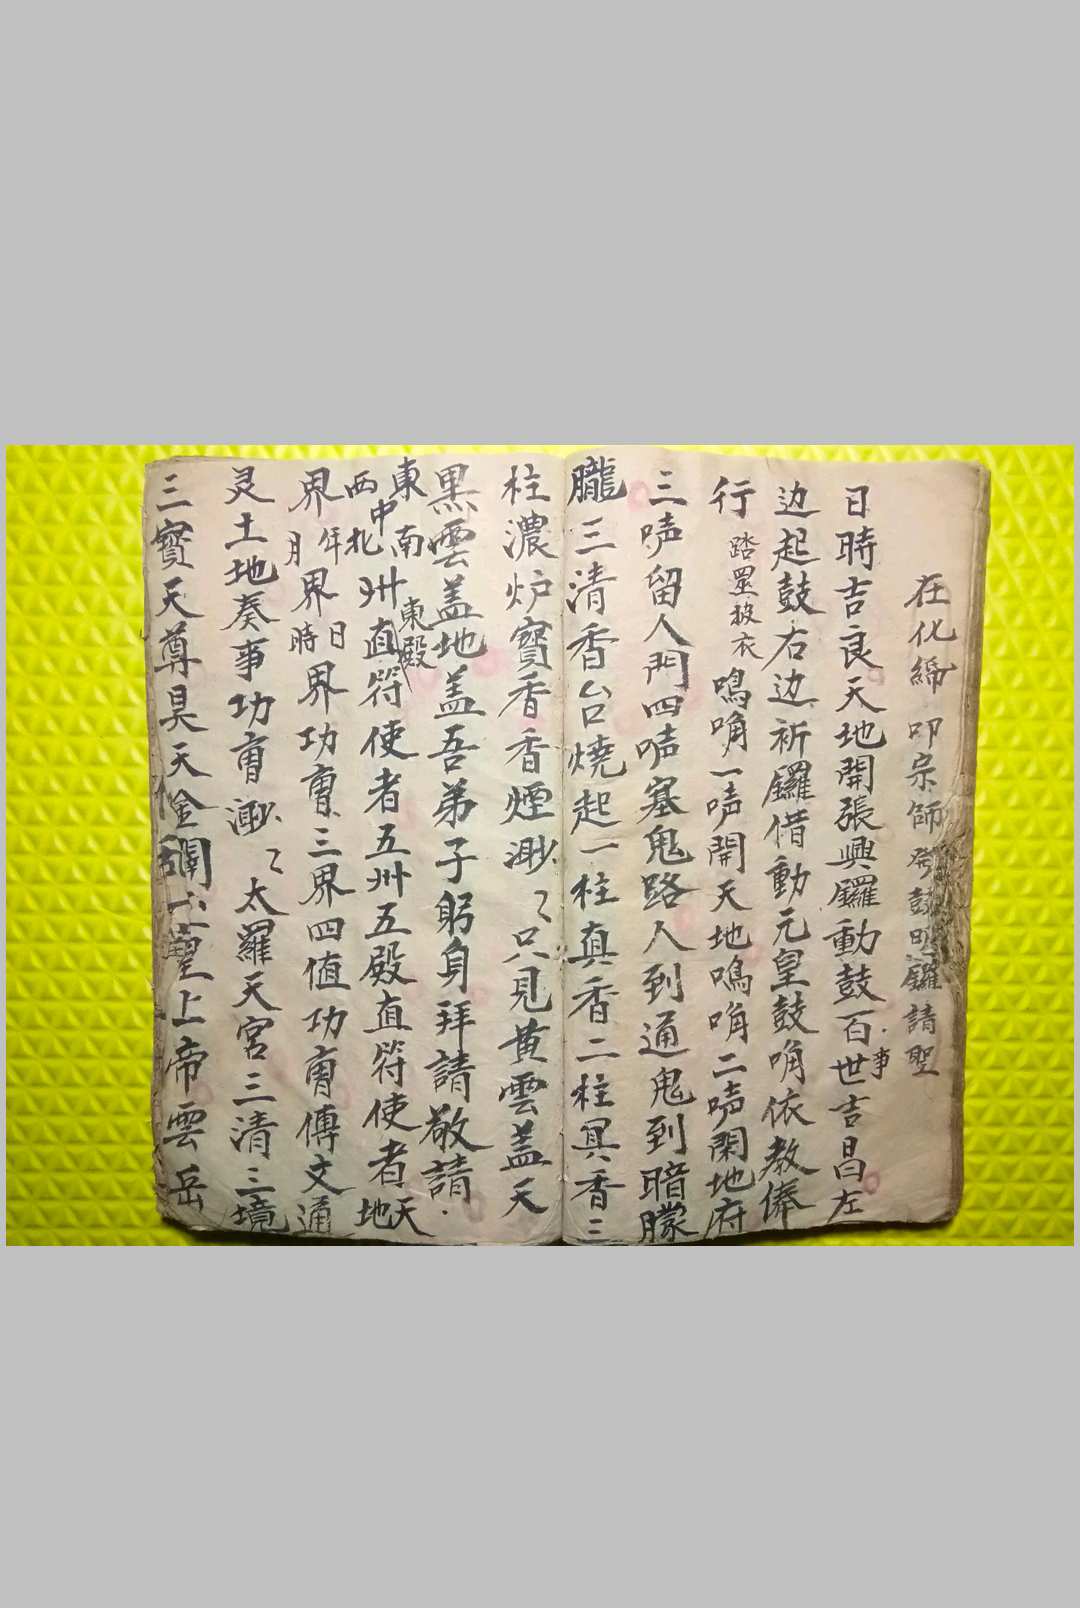 在化締 叩宗師 發鼓明鑼請聖
日時吉良天地開張興鑼動鼓百世事吉昌左
边起鼓右边祈鑼借動元皇鼓角依教俸
行 踏罡披衣 鳴角一声開天地鳴角二声閑地府
三声留人門四声塞鬼路人到通鬼到暗朦
朧三清香台燒起一柱真香二柱真香三
柱濃炉寶香香煙渺〻只見黄雲盖天
黒雲盖地盖吾弟子躬身拜請敬請
東南中西北州直符使者五州五殿直符使者天地
東殿
界年月界日時界功曹三界四值功曹傳文通
灵土地奏事功曹渺〻太羅天宮三清三境
三寶天尊昊天金闕玉皇上帝雲岳